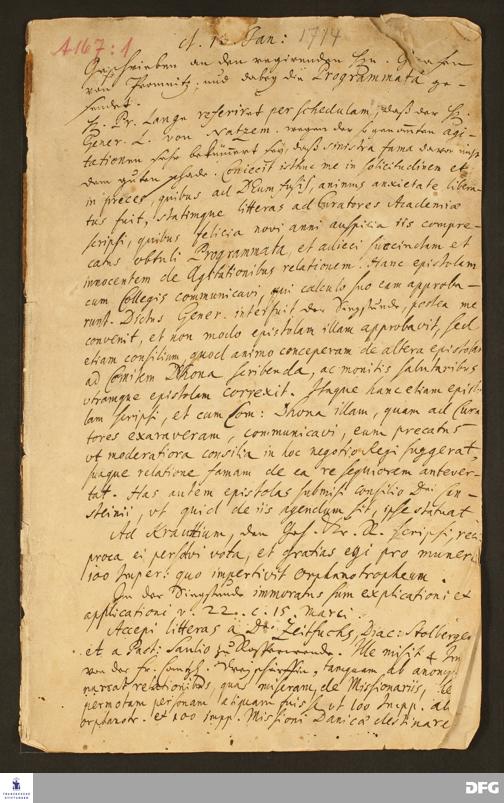 A167:1
d. 1. Jan: 1714
Geschrieben an den regierenden Hn. Grafen
von Promnitz, und dabey die Programmata ge-
sendet.
H. Pr. Lange referiret per schedulam, daß der H.
Gener. L. von Natzem. wegen der sogenannten Agi-
tationen sehr bekümmert sey, daß sinistra fama davon nicht
dem guten schade. Coniecit isthuc me in solicitudinem et
in preces, quibus ad Deum fusis, animus anxietate libera-
tus fuit, statimque litteras ad Curatores Academiæ
scripsi, quibus felicia novi anni auspicia iis compre-
catus obtuli Programmata, et adieci succinctam et
innocentem de Agitationibus relationem. Hanc epistolam
cum Collegis communicavi, qui calculo suo eam approba-
runt. Dictus Gener. interfuit der Singstunde, postea me
convenit, et non modo epistolam illam approbavit, sed
etiam consilium, quod animo conceperam de altera epistola
ad Comitem Dhona scribenda, ac monitis salutaribus
utramque epistolam correxit. Itaque hanc etiam episto-
lam scripsi, et cum Com: Dhona illam, quam ad Cura-
tores exaraveram, communicavi, eum precatus
ut moderatiora consilia in hoc negotio Regi suggerat,
suaque relatione famam de ea re sequiorem antever-
tat. Has autem epistolas submisi consilio Dni Can-
steinii, ut quid de iis agendum sit, ipse statuat.
Ad Krautium, den Geh. Kr. R. scripsi, reci
proca ei persolvi vota, et gratias egi pro munere
100 Imper: quo impertivit Orphanotropheum.
In der Singstunde immoratus sum explicationi et
applicationi v. 22. c. 15. Marci.
Accepi litteras a Dn. Zeitfuchs, Diac: Stolberge
et a Past: Saulio zu
von der Fr. tanquam ab anony
narrat relationibus, quas miseram, de Missionariis,
permotam personam aliquam fuisse, ut 100 Impp. ab
orphanotr. et 100 Impp. Missioni Danicæ destinare
FRANCKESCHE STIFTUNGEN
DFG